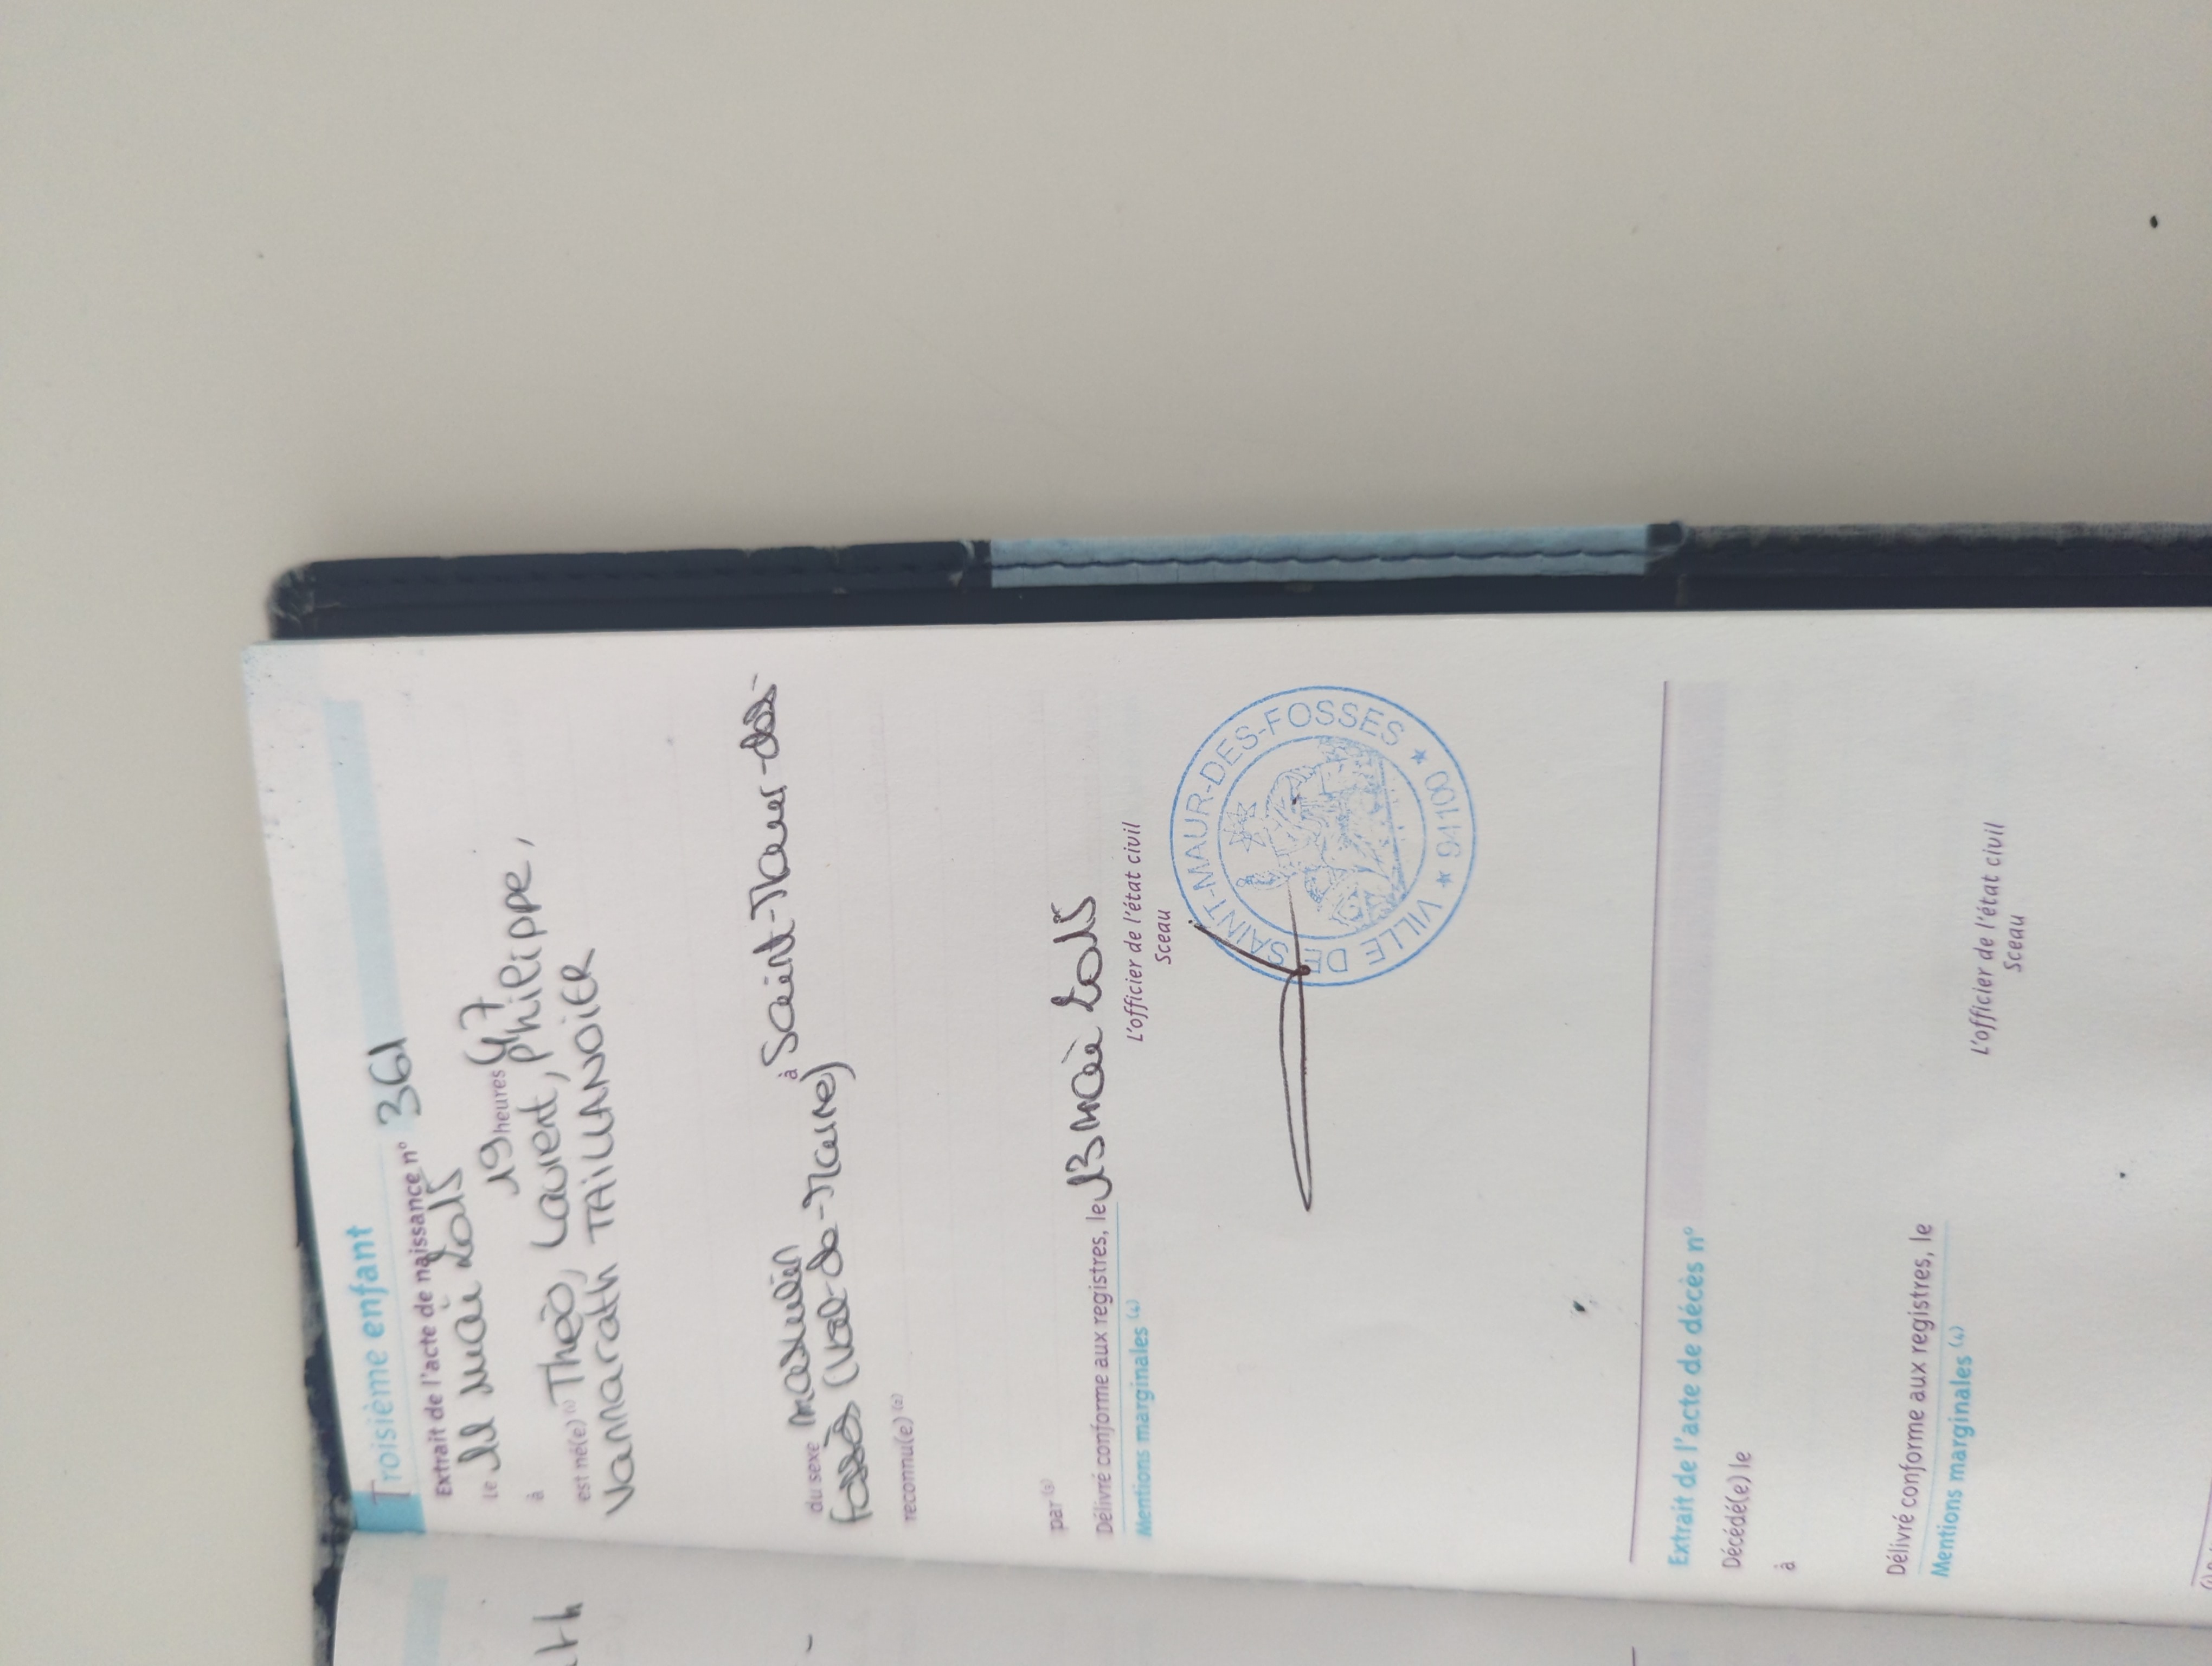 Troisième enfant
Extrait de l'acte de naissance n° 361
le 11 mai 2015
à 19 heures 47
est né(e) (1) Théo, Laurent, Philippe,
Vannarath TAILLANDIER
du sexe masculin à Saint-Maur-des-
Fossés (Val-de-Marne)
reconnu(e) (2)
par (3)
Délivré conforme aux registres, le 13 mai 2015
Mentions marginales (4)
L'officier de l'état civil
Sceau
VILLE DE SAINT-MAUR-DES-FOSSES ★ 94100 ★
Extrait de l'acte de décès n°
Décédé(e) le
à
Délivré conforme aux registres, le
Mentions marginales (4)
L'officier de l'état civil
Sceau